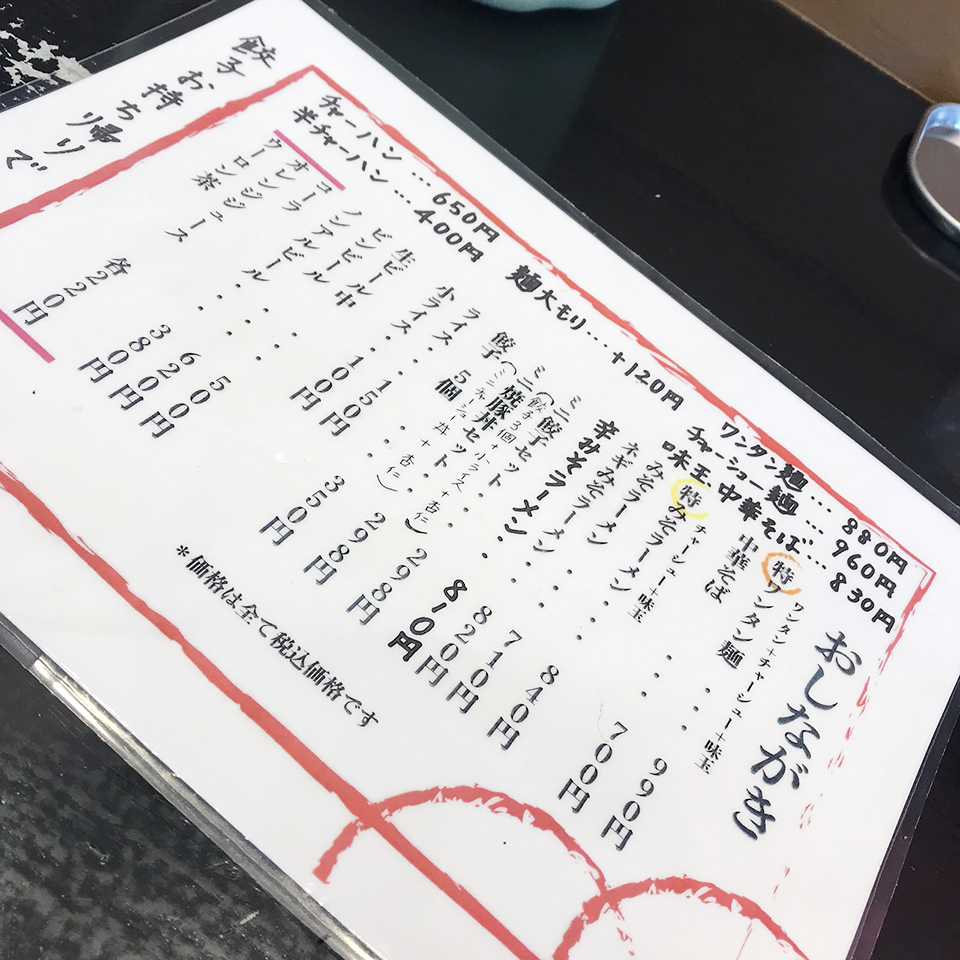 ワンタン麺…880円
チャーシュー麺…960円
味玉中華そば…830円
麺大モリ…+120円
チャーハン…650円
半チャーハン…400円
餃子お持ち帰りで
おしながき
ワンタン+チャーシュー+味玉
特ワンタン麺・・・990円
中華そば・・・700円
チャーシュー+味玉
特みそラーメン・・・840円
みそラーメン・・・710円
ネギみそラーメン・・・820円
辛みそラーメン・・・810円
ミニ餃子セット・・・298円
(餃子3個+小ライス+杏仁)
ミニ焼豚丼セット・・・298円
(ミニチャーシュー丼+杏仁)
餃子 5個・・・350円
ライス・・・150円
小ライス・・・100円
生ビール・・・500円
ビンビール中・・・620円
ノンアルビール・・・380円
コーラ
オレンジジュース
ウーロン茶
各220円
*価格は全て税込価格です